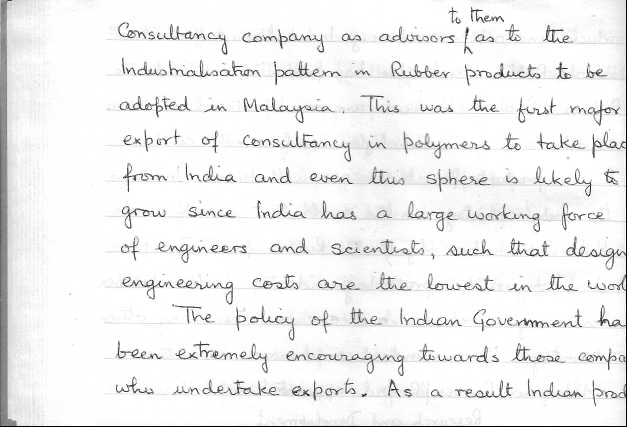 to them
Consultancy company as advisors as to the
Industrialisation pattern in Rubber products to be
adopted in Malaysia. This was the first major
export of consultancy in polymers to take plac
from India and even this sphere is likely to
grow since India has a large working force
of engineers and scientists, such that design
engineering costs are the lowest in the worl
The policy of the Indian Government ha
been extremely encouraging towards those compa
who undertake exports. As a result Indian prod